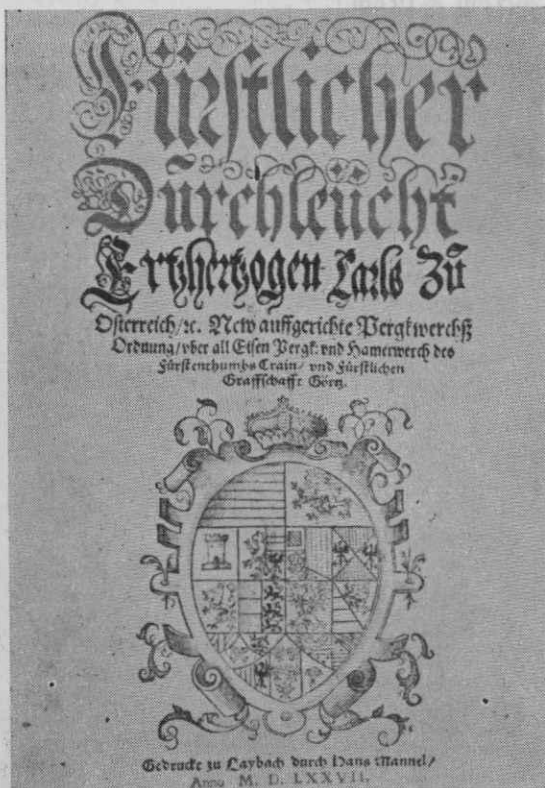 Fürstlicher
Dūrchleücht
Ertzhertzogen Carls Zū
Osterreich/ꝛc. New auffgerichte Pergkwerchß
Ordnung/vber all Eisen Pergk: vnd Hamerwerch des
Fürstenthumbs Crain/ vnd Fürstlichen
Graffschafft Görtz.
Gedruckt zu Laybach durch Hans Mannel/
Anno M. D. LXXVII.